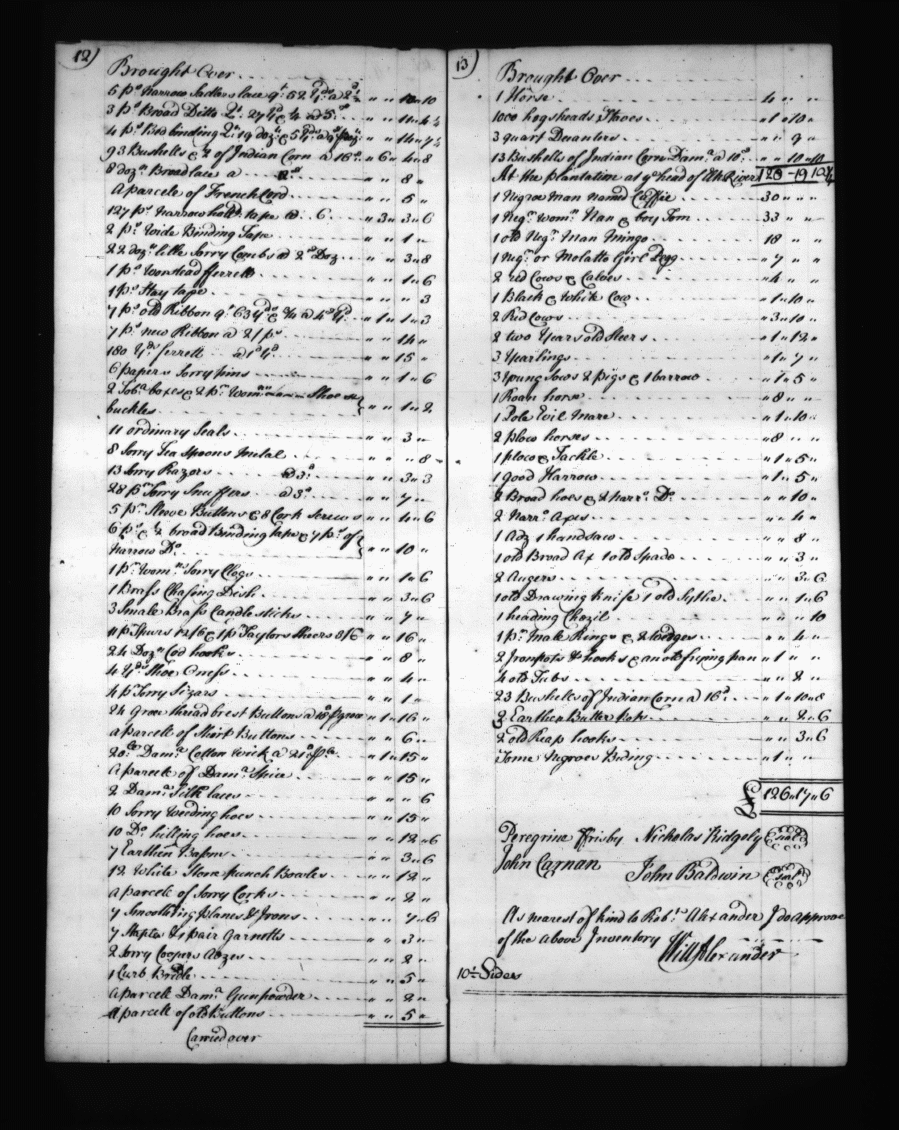 12)
Brought Over
5 ps narrow Sadlers lace qt 52 yds a 2½ " " 10 " 10
3 ps Broad Ditto Qt 27 yds & ¼ a 5d " " 11 " 4¼
4 ps binding Qt 19 doz & 5 yds " " 14 " 7½
93 Bushells & ½ of Indian Corn a 16d " 6 " 4 " 8
8 dozn Broad lace a 12d " " 8 "
A parcele of French Cord " " 5 "
127 ps narrow tape a 6 " 3 " 3 " 6
2 ps Wide Binding Tape " " 1 "
22 dozn little Sorry Combs a 2d Doz " " 3 " 8
1 ps Worstead fferrett " " 1 " 6
1 ps Stay tape " " " 3
7 ps old Ribbon qt 63 yds & ¼ a 4d yd " 1 " 1 " 3
7 ps new Ribbon a 2/ ps " " 14 "
180 yds ferrett a 1d yd " " 15 "
6 papers Sorry pins " " 1 " 6
2 Tobo boxes & 2 pr Womns Shoe
buckles " " 1 " 2
11 ordinary Seals " " 3 "
8 Sorry Tea Spoons Metal " " " 8
13 Sorry Razors a 3d " " 3 " 3
28 pr Sorry Snuffers a 3d " " 7 "
5 pr Sleeve Buttons & 8 Cork Screws " " 4 " 6
6 ps & ½ broad Binding tape & 7 ps of
Narrow Do " " 10 "
1 pr Womns Sorry Clogs " " 1 " 6
1 Brass Chafing Dish " " 3 " 6
3 Smale Brass Candlesticks " " 7 "
11 pr Spurs 12/6 & 1 pr Taylors Sheers 3/6 " " 16 "
24 Dozn Cod hooks " " 8 "
4 yds Shoe " " 4 "
4 pr Sorry Sizars " " 1 "
24 Groce thread brest Buttons a 18d p groce " 1 " 16 "
a parcele of Shirt Buttons " " 6 "
20lb Damd Cotton Wick a 21d p lb " 1 " 15 "
A parcele of Damd Spice " " 15 "
2 Damd Silk laces " " " 6
10 Sorry Weeding hoes " " 15 "
10 Do hilling hoes " " 12 " 6
7 Earthen Basons " " 3 " 6
12 White Stone punch Bowles " " 12 "
a parcele of Sorry Corks " " 2 "
7 Smoothing planes & Irons " " 7 " 6
7 Staples & 1 pair Garnetts " " 3 "
2 Sorry Coopers Adzes " " 2 "
1 Curb Bridle " " 5 "
a parcele Damd Gunpowder " " 2 "
A parcele of old Buttons " " 5 "
Carried over
13)
Brought Over
1 Horse 4 " "
1000 hogsheads Hoops " 1 " 10 "
3 quart Decanters " " 9 "
13 Bushells of Indian Corn Damd a 10d " " 10 " 10
At the plantation at ye head of Elk River 128 - 19 10¼
1 Negroe man named Cuffie 30 " "
1 Negr womn Nan & boy Tom 33 " "
1 old Negr Man Mingo 18 " "
1 Negr or Molatto Girl Pegg " 7 " "
2 red Cows & Calves " 4 " "
1 Black & White Cow " 1 " 10 "
2 Red Cows " 3 " 10 "
2 two Years old Steers " 1 " 12 "
3 Yearlings " 1 " 7 "
3 Young Sows 2 pigs & 1 barrow " 1 " 5 "
1 Roan horse " 8 " "
1 Pole Evil Mare " 1 " 10 "
2 plow horses " 8 " "
1 plow & Tackle " 1 " 5 "
1 good Harrow " 1 " 5 "
2 Broad hoes & 2 narrw Do " " 10 "
2 Narrw Axes " " 4 "
1 Adz 1 handsaw " " 8 "
1 old Broad Ax 1 old Spade " " 3 "
2 Augers " " 3 " 6
1 old Drawing knife 1 old Sythe " " 1 " 6
1 heading Chezil " " " 10
1 pr Male Rings & 2 Wedges " " 4 "
2 Iron pots & hooks & an old friping pan " 1 " "
4 old Tubs " " 8 "
23 Bushells of Indian Corn a 16d " 1 " 10 " 8
2 Earthen Butter Pots " " 2 " 6
2 old Reap hooks " " 3 " 6
Some Negroes Beding " 1 " "
£ 126 " 17 " 6
Peregrine Frisby Nicholas Ridgely Seal
John Carnan
John Baldwin Seal
As nearest of kind to Robt Alexander I do approve
of the above Inventory
Will Alexander
10½ Sides